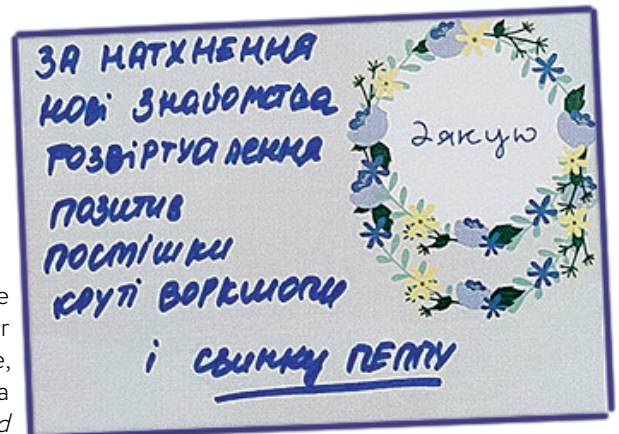 ЗА НАТХНЕННЯ
НОВІ ЗНАЙОМСТВА
РОЗВІРТУАЛЕННЯ
ПОЗИТИВ
ПОСМІШКИ
КРУТІ ВОРКШОПИ
і СВИНКУ ПЕППУ
Дякую
e
r
e,
a
d